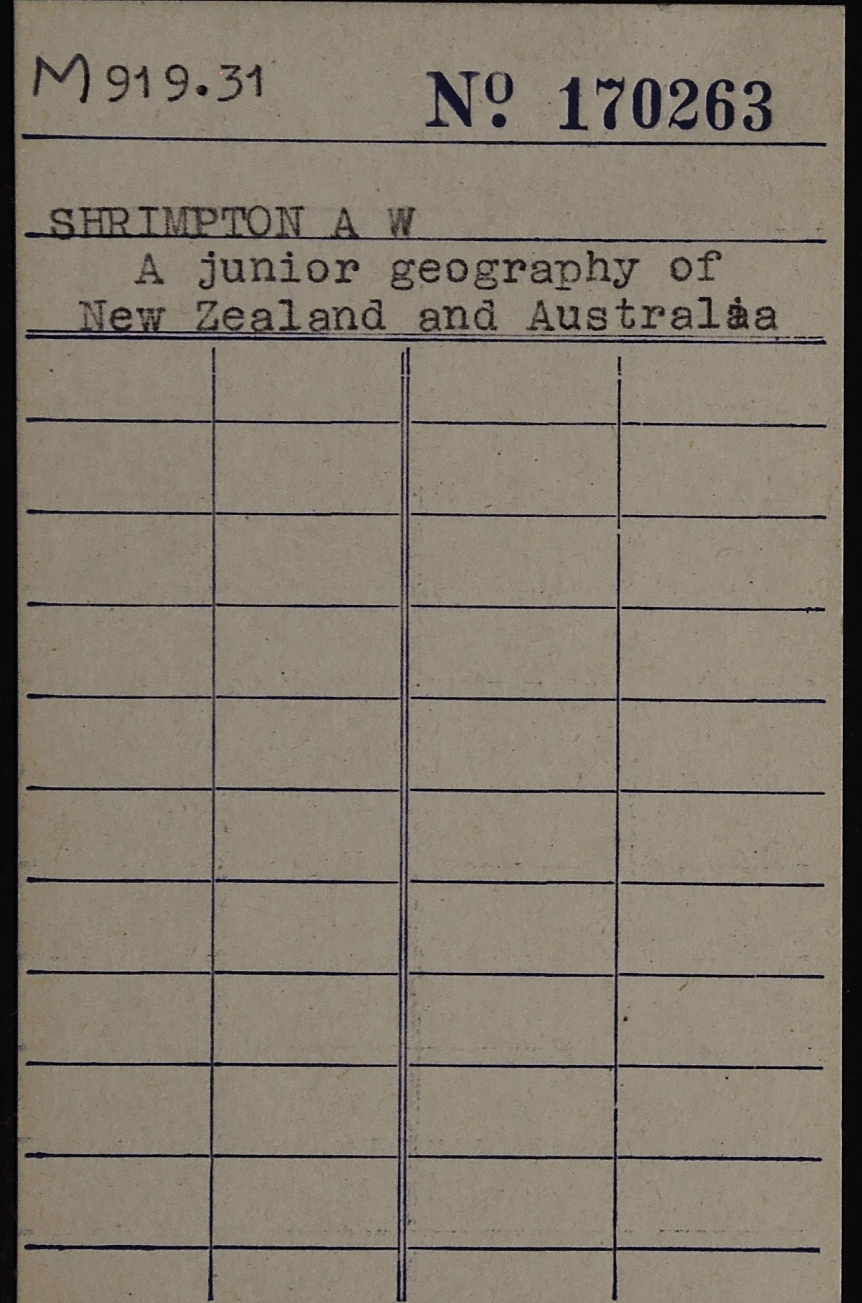 M 919.31
Nº 170263
SHRIMPTON A W
A junior geography of
New Zealand and Australia